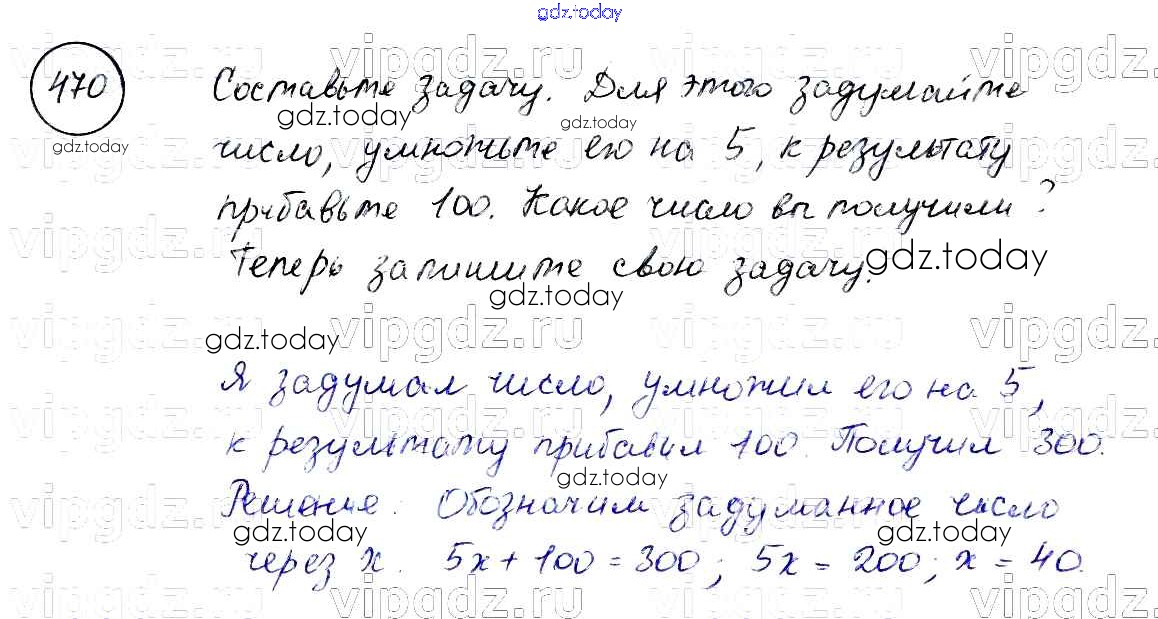 gdz.today
470
Составьте задачу. Для этого задумайте
gdz.today gdz.today
gdz.today
число, умножьте его на 5, к результату
прибавьте 100. Какое число вы получили?
Теперь запишите свою задачу.
gdz.today
gdz.today
vipgdz.ru vipgdz.ru vipgdz.ru
gdz.today
Я задумал число, умножил его на 5,
к результату прибавил 100. Получил 300.
gdz.today
Решение. Обозначим задуманное число
gdz.today gdz.today
через x. 5x + 100 = 300; 5x = 200; x = 40.
vipgdz.ru vipgdz.ru vipgdz.ru